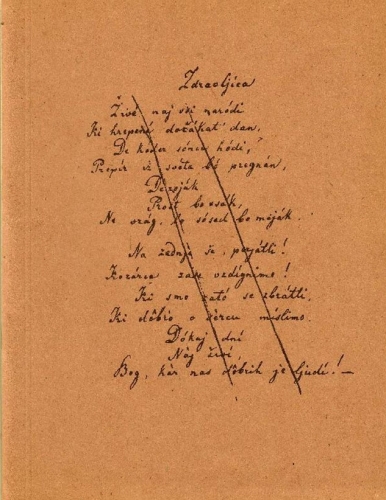 Zdravljica
Živé naj vsi naródi
Ki hrepené dočákat' dan,
De koder sónce hódi,
Prepír iz svéta bó pregnán,
De roják
Prost bo vsák,
Ne vrág, le sósed bo mêják.
Na zadnje še, prijátli!
Kozárce zase vzdignimo!
Ki smo zató se zbrátli,
Ki dôbro v sercu míslimo.
Dókaj dní
Náj živí
Bog, kár nas dôbrih je ljudí! —